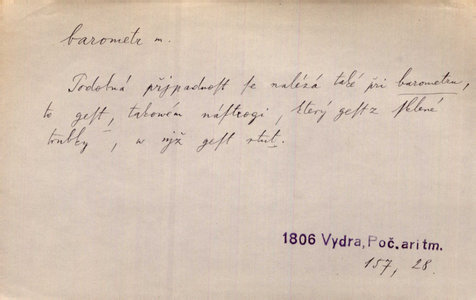 barometr m.
Podobná přjpadnost se nalézá také při barometru,
to gest, takowém nástrogi, který gest z sklené
trubky –, w njž gest rtut.
1806 Vydra, Poč. aritm.
157, 28.